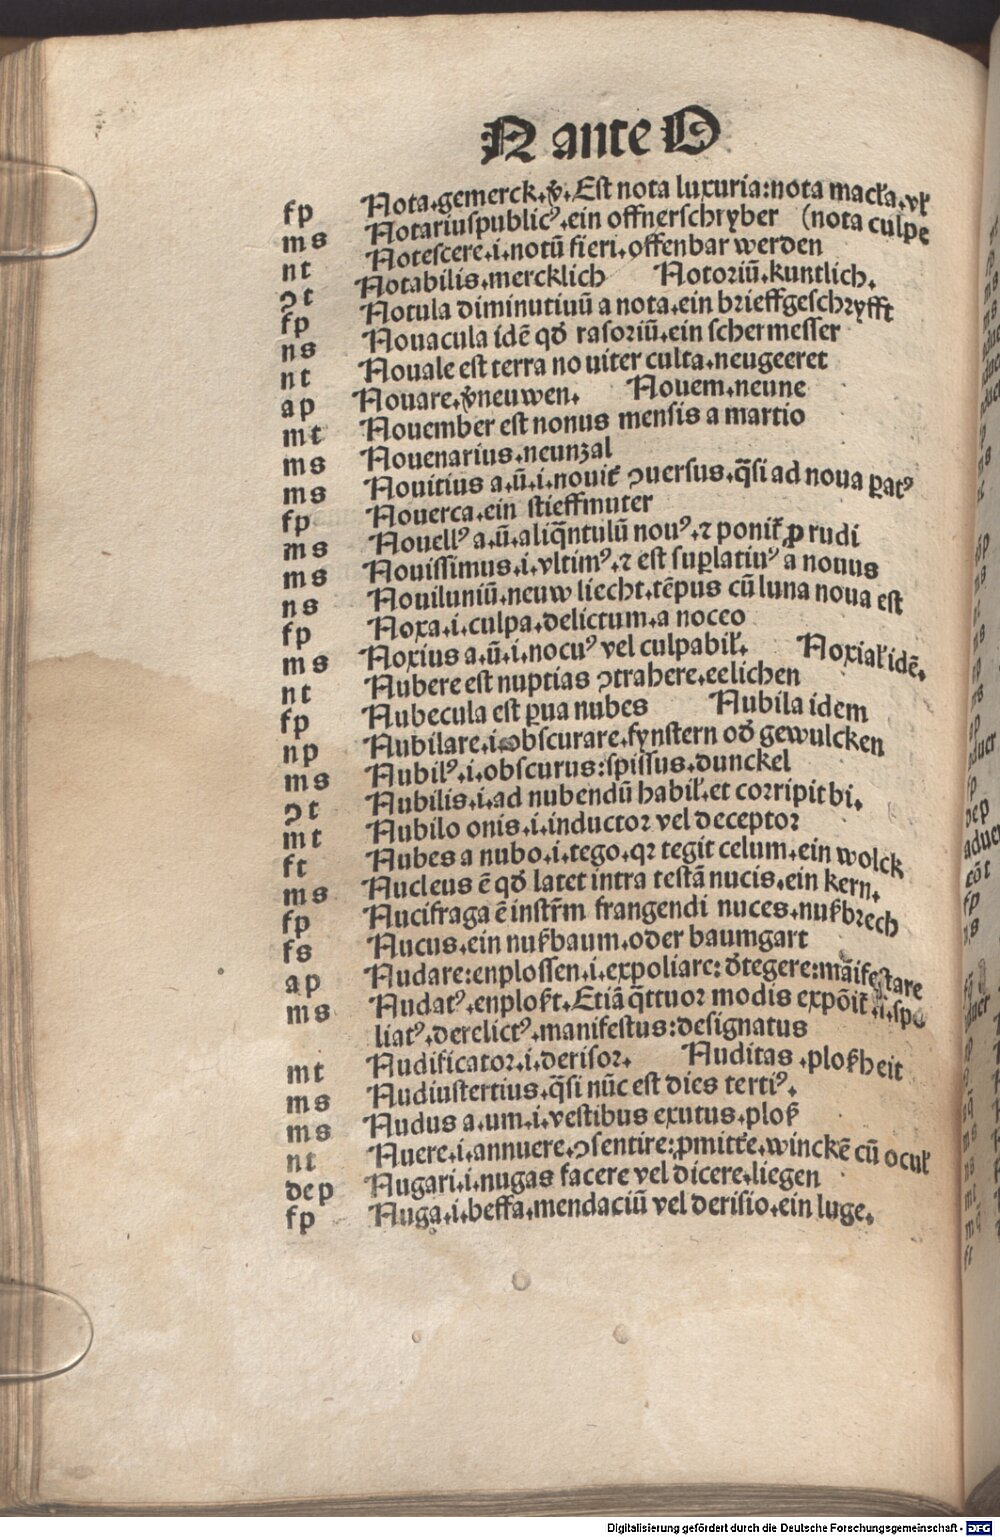 N ante O
fp Nota.gemerck.v̄.Est nota luxuria:nota macła.vł
ms Notariuspublicꝰ.ein offnerschryber (nota culpe
nt Notescere.i.notū fieri.offenbar werden
ↄt Notabilis.mercklich Notoriū.kuntlich.
fp Notula diminutiuū a nota.ein brieffgeschryfft
ns Nouacula idē qđ rasoriū.ein schermesser
nt Nouale est terra no uiter culta.neugeeret
ap Nouare.v̄neuwen. Nouem.neune
mt Nouember est nonus mensis a martio
ms Nouenarius.neunzal
ms Nouitius a.ū.i.nouit̄ ↄuersus.q̄si ad noua ꝑatꝰ
fp Nouerca.ein stieffmuter
ms Nouellꝰ a.ū.aliq̄ntulū nouꝰ.⁊ ponit̄ ꝓ rudi
ms Nouissimus.i.vltimꝰ.⁊ est suꝑlatiuꝰ a nouus
ns Nouiluniū.neuw liecht.tēpus cū luna noua est
fp Noxa.i.culpa.delictum.a noceo
ms Noxius a.ū.i.nocuꝰ vel culpabił. Noxiał idē.
nt Nubere est nuptias ↄtrahere.eelichen
fp Nubecula est ꝑua nubes Nubila idem
np Nubilare.i.obscurare.fynstern od̄ gewulcken
ms Nubilꝰ.i.obscurus:spissus.dunckel
ↄt Nubilis.i.ad nubendū habił.et corripit bi.
mt Nubilo onis.i.inductor vel deceptor
ft Nubes a nubo.i.tego.qꝛ tegit celum.ein wolck
ms Nucleus ē qđ latet intra testā nucis.ein kern.
fp Nucifraga ē instr̄m frangendi nuces.nußbrech
fs Nucus.ein nußbaum.oder baumgart
ap Nudare:enplossen.i.expoliare:d̄tegere:māifestare
ms Nudatꝰ.enploßt.Etiā q̄ttuor modis expōit̄.i.spo
liatꝰ.derelictꝰ.manifestus:designatus
mt Nudificator.i.derisor. Nuditas.ploßheit
ms Nudiustertius.q̄si nūc est dies tertiꝰ.
ms Nudus a.um.i.vestibus exutus.ploß
nt Nuere.i.annuere.ↄsentire:ꝓmitt̄e.winckē cū ocuł
dep Nugari.i.nugas facere vel dicere.liegen
fp Nuga.i.beffa.mendaciū vel derisio.ein luge.
Digitalisierung gefördert durch die Deutsche Forschungsgemeinschaft - DFG